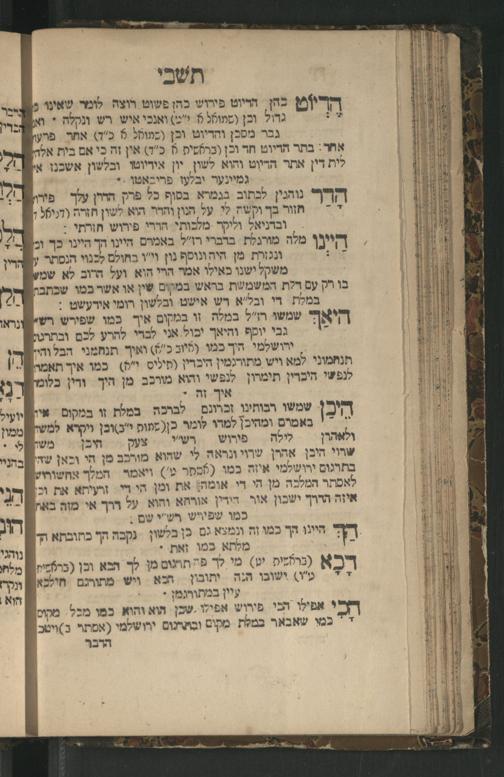 תשבי
הֶדְיוֹט כהן הדיוט פירוש כהן פשוט רוצה לומר שאינו
גדול וכן (שמואל א י"ט) ואנכי איש רש ונקלה
גבר מסכן והדיוט וכן (שמואל א כ"ד) אחר פרעוש
אחד: בתר הדיוט חד וכן (בראשית א כ"ד) אין זה כי אם בית אלהים
לית דין אתר הדיוט והוא לשון יון אידיוטו ובלשון אשכנז
גמיינער ובלעז פריבאטו
הָדַר נוהגין לכתוב בגמרא בסוף כל פרק הדרן עלך פירוש
חזור בך וקשה לי על הנון והדר הוא לשון חזרה (דניאל
ובדניאל וליקר מלכותי הדרי פירוש חזרתי :
הַיְינוּ מלה מורגלת בדברי רז"ל באמרם היינו הך היינו כך
ונגזרת מן היה ונוסף נון וי"ו בחולם לכנוי הנסתר
משקל ישנו כאילו אמר הרי הוא ועל הרוב לא שמשו
בו רק עם דלת המשמשת בראש במקום שין או אשר כמו שכתבתי
במלת די ובל"א דש אישט ובלשון רומי אידעשט :
הֵיאַךְ שמשו רז"ל במלה זו במקום איך כמו שפירש רש"י
גבי יוסף והיאך יכול אני לבדי להרע לכם ובתרגום
ירושלמי היך כמו (איוב כ"א) ואיך תנחמוני הבל והיך
תנחמוני למא ויש מתורגמין היכדין (תילים י"א) כמו איך תאמרו
לנפשי היכדין תימרון לנפשי והוא מורכב מן היך ודין כלומר
איך זה
הֵיכָן שמשו רבותינו זכרונם לברכה במלת זו במקום
באמרם ומהיכן למדו לומר כן (שמות י"ב) וכן ויקרא למשה
ולאהרן לילה פירוש רש"י צעק היכן משה
שרוי היכן אהרן שרוי ונראה לי שהוא מורכב מן הי וכאן
בתרגום ירושלמי איזה כמו (אסתר ט') ויאמר המלך אחשורוש
לאסתר המלכה מן הי די אומה את ומן הי די זרעיתא את
איזה הדרך ישכון אור הידין אורחא והוא על דרך אי מזה באת
כמו שפירש רש"י שם
הַךְ היינו הך כמו זה ונמצא גם כן בלשון נקבה הך כתובתא הך
מלתא כמו זאת
הָכָא (בראשית יט) מי לך פה תרגום מן לך הכא וכן (בראשית
ט"ו) ישובו הנה יתובון הכא ויש מתורגם הילכא
עיין במתורגמן
הָכִי אפילו הכי פירוש אפילו שכן הוא והוא כמו מכל מקום
כמו שאבאר במלת מקום ובתרגום ירושלמי (אסתר ב)
הדבר